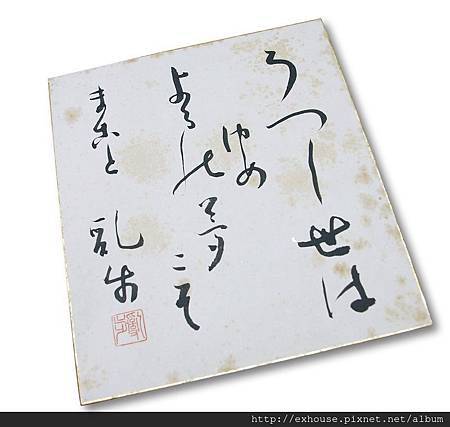 うつし世は
ゆめ
よるの夢こそ
まこと 乱歩
http://exhouse.pixnet.net/album